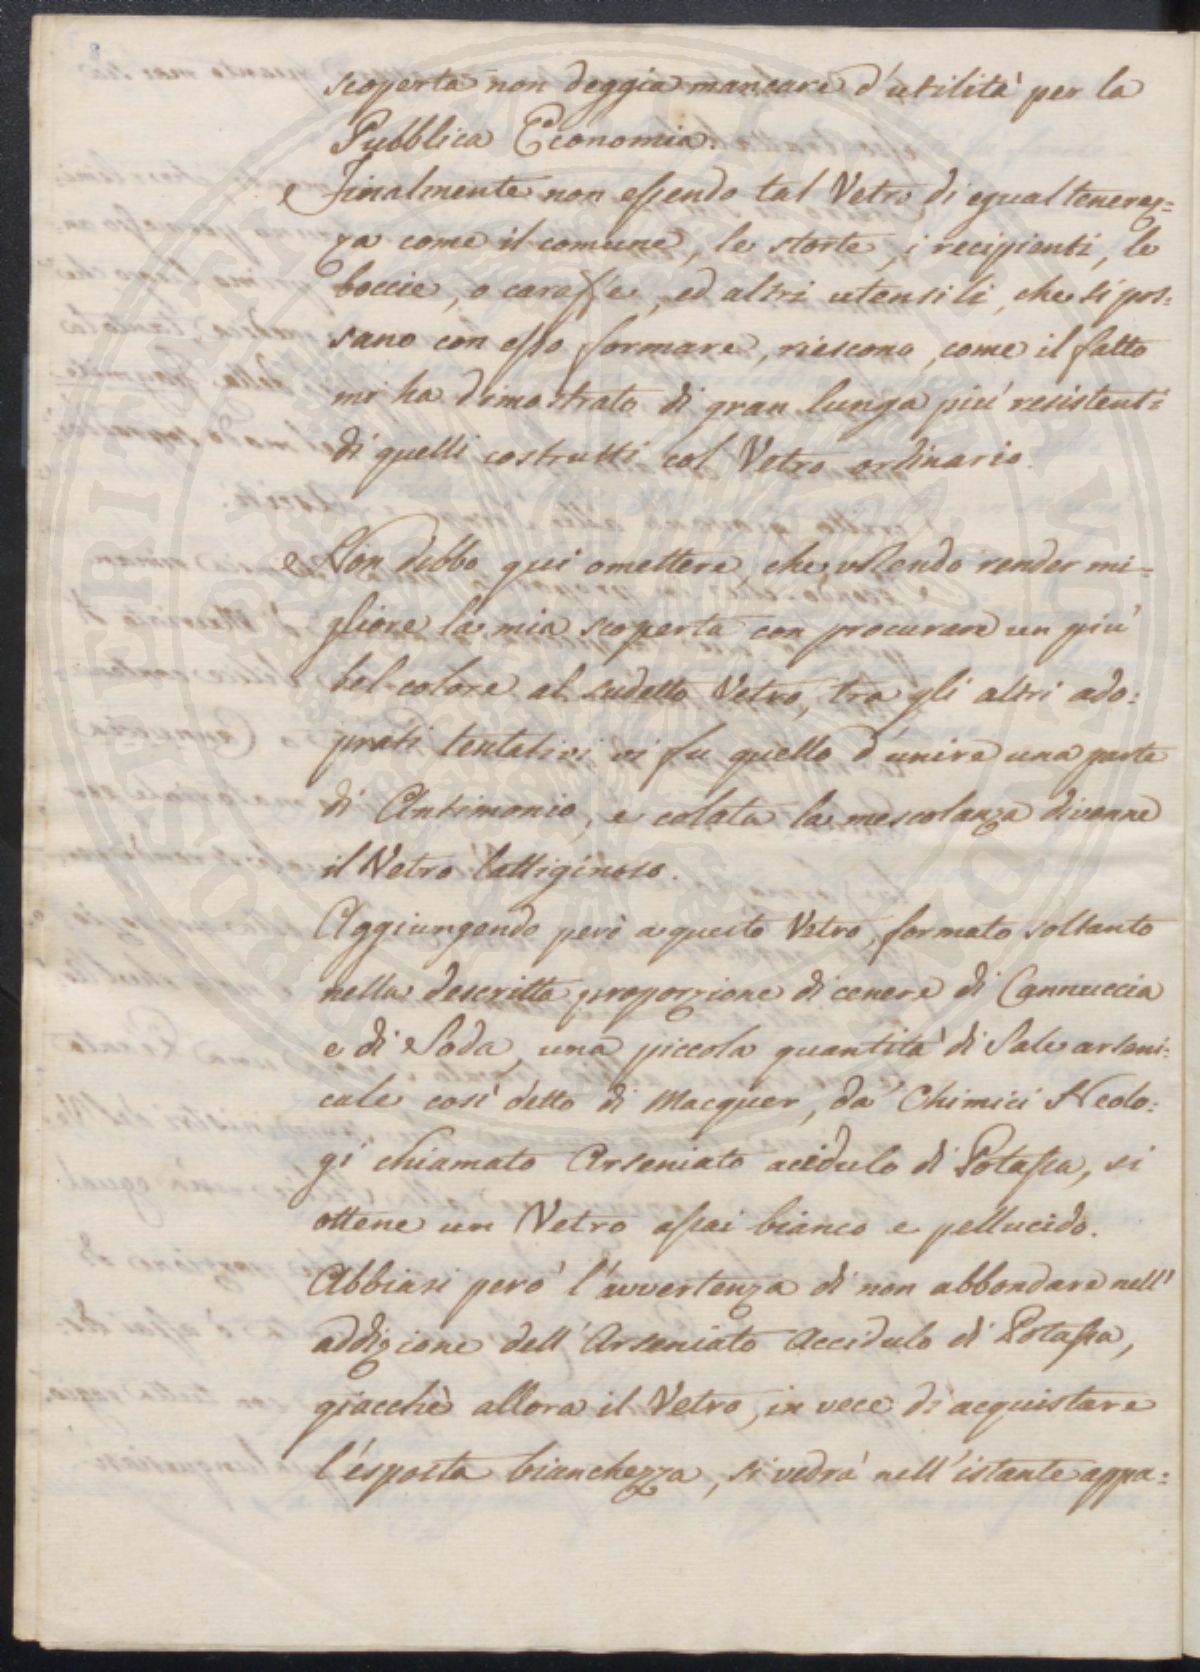 8
scoperta non deggia mancare d'utilità per la
Pubblica Economia.
Finalmente non essendo tal Vetro di egual tenerez=
za come il comune, le storte, i recipienti, le
boccie, o caraffe, ed altri utensili, che si pos=
sano con esso formare, riescono, come il fatto
mi ha dimostrato di gran lunga più resistenti
di quelli costrutti col Vetro ordinario.
Non debbo qui omettere, che volendo render mi=
gliore la mia scoperta con procurare un più
bel colore al sudetto Vetro, tra gli altri ado=
prati tentativi vi fu quello d'unire una parte
di Antimonio, e colata la mescolanza divenne
il Vetro lattiginoso.
Aggiungendo però a questo Vetro, formato soltanto
nella descritta proporzione di cenere di Cannuccia
e di Soda, una piccola quantità di Sale arseni=
cale così detto di Macquer, da' Chimici Neolo=
gi chiamato Arseniato acidulo di Potassa, si
ottene un Vetro assai bianco e pellucido.
Abbiasi però l'avvertenza di non abbondare nell'
addizione dell'Arseniato Accidulo di Potassa,
giacchè allora il Vetro, in vece di acquistare
l'esposta bianchezza, si vedrà nell'istante appa=